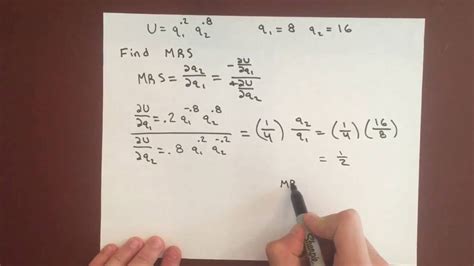 U = q₁^.2 q₂^.8   q₁ = 8   q₂ = 16
Find MRS
MRS = ∂q₂/∂q₁ = (-∂U/∂q₁)/(∂U/∂q₂)
∂U/∂q₁ = .2 q₁^-.8 q₂^.8
∂U/∂q₂ = .8 q₁^.2 q₂^-.2
= (1/4) q₂/q₁ = (1/4)(16/8)
= 1/2
MR
Sharpie